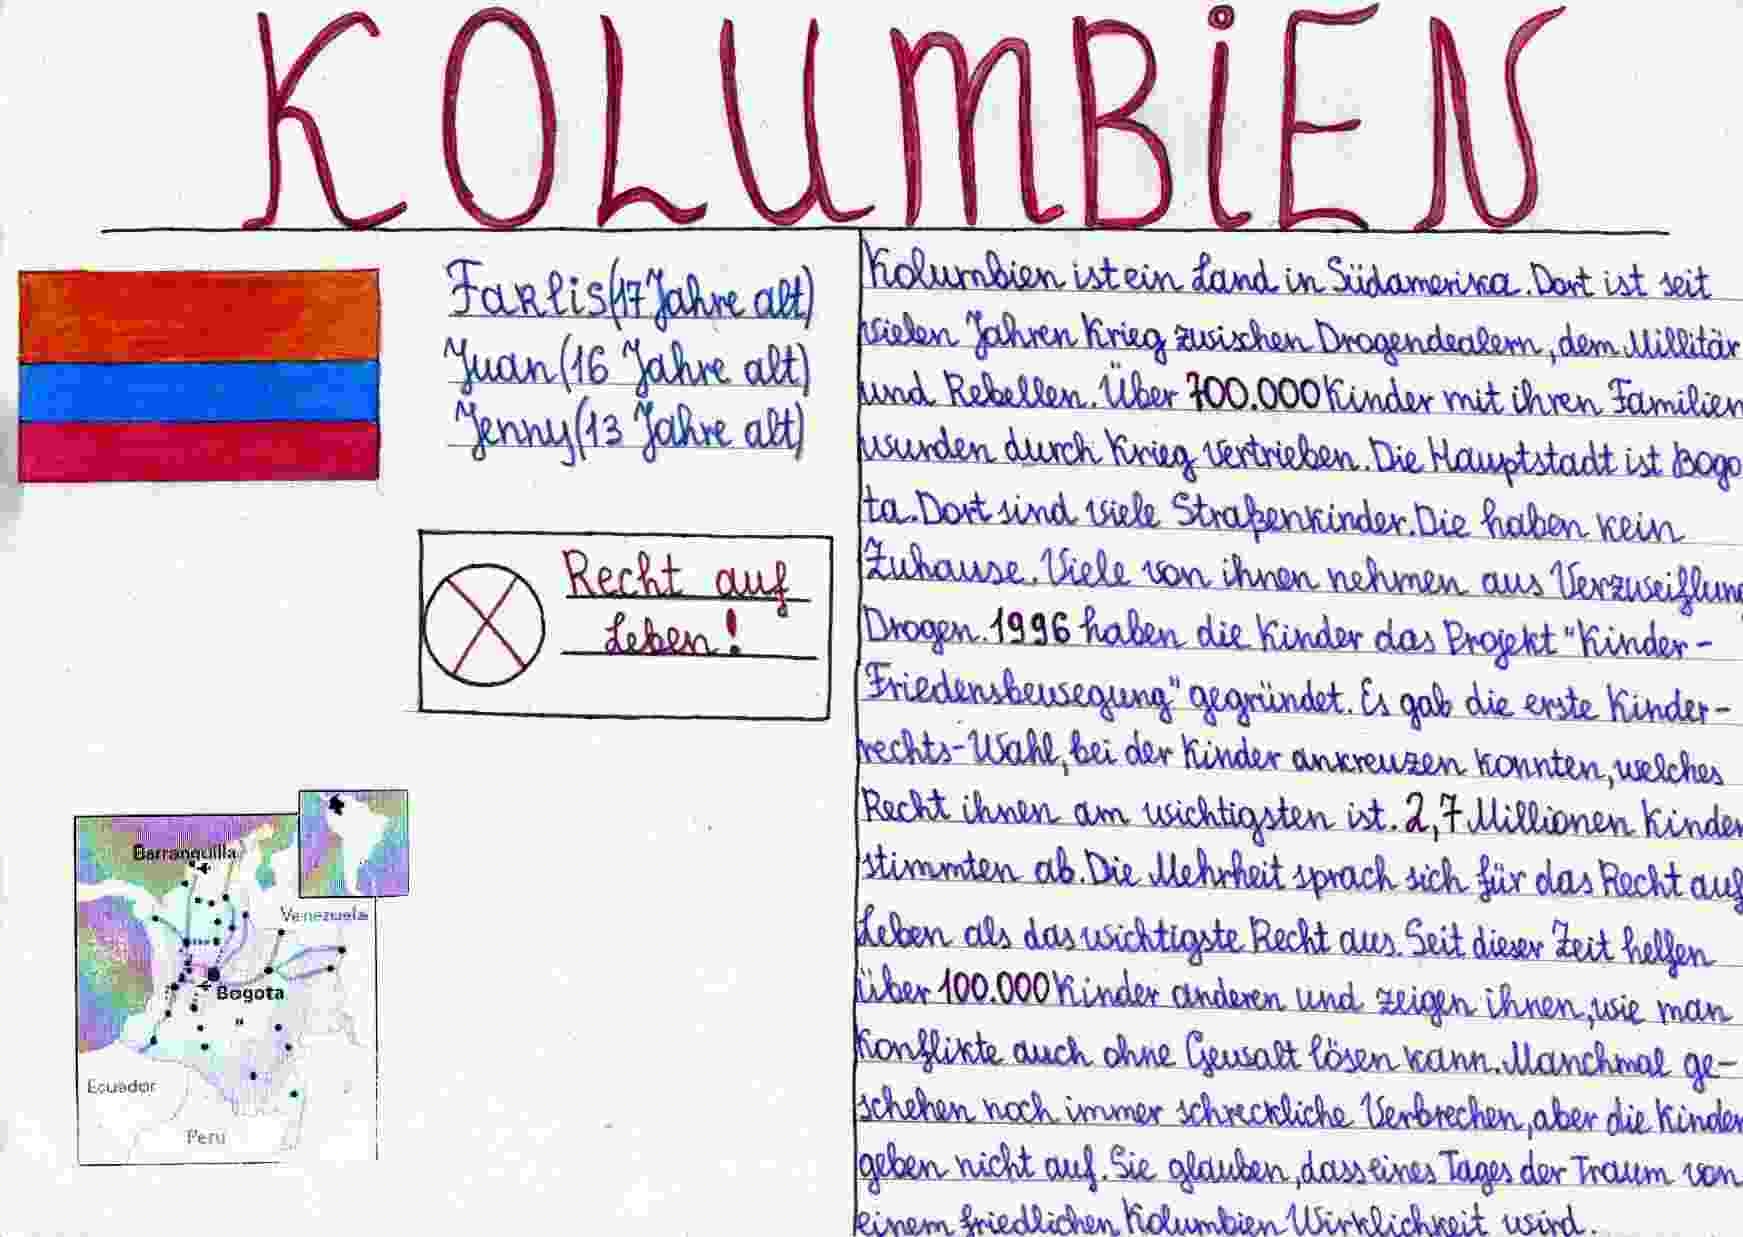 KOLUMBIEN
Farlis (17 Jahre alt)
Juan (16 Jahre alt)
Jenny (13 Jahre alt)
Recht auf
Leben!
Barranquilla
Venezuela
Bogota
Ecuador
Peru
Kolumbien ist ein Land in Südamerika. Dort ist seit
vielen Jahren Krieg zwischen Drogendealern, dem Millitär
und Rebellen. Über 700.000 Kinder mit ihren Familien
wurden durch Krieg vertrieben. Die Hauptstadt ist Bogo
ta. Dort sind viele Straßenkinder. Die haben kein
Zuhause. Viele von ihnen nehmen aus Verzweiflung
Drogen. 1996 haben die Kinder das Projekt "Kinder-
Friedensbewegung" gegründet. Es gab die erste Kinder-
rechts-Wahl, bei der Kinder ankreuzen konnten, welches
Recht ihnen am wichtigsten ist. 2,7 Millionen Kinder
stimmten ab. Die Mehrheit sprach sich für das Recht auf
Leben als das wichtigste Recht aus. Seit dieser Zeit helfen
über 100.000 Kinder anderen und zeigen ihnen, wie man
Konflikte auch ohne Gewalt lösen kann. Manchmal ge-
schehen noch immer schreckliche Verbrechen, aber die Kinder
geben nicht auf. Sie glauben, dass eines Tages der Traum von
einem friedlichen Kolumbien Wirklichkeit wird.